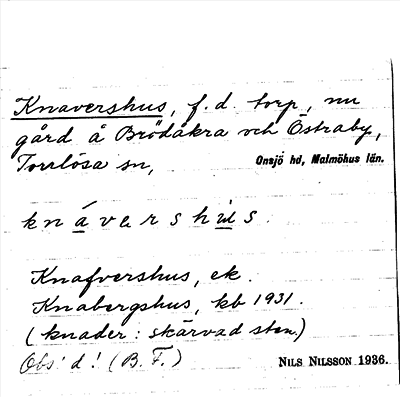 Knavershus, f. d. torp, nu
gård å Brödåkra och Östraby,
Torrlösa sn, Onsjö hd, Malmöhus län.
knávershùs.
Knafvershus, ek.
Knabergshus, kb 1931.
(knader: skärvad sten.)
Obs! d! (B. F.) NILS NILSSON 1936.